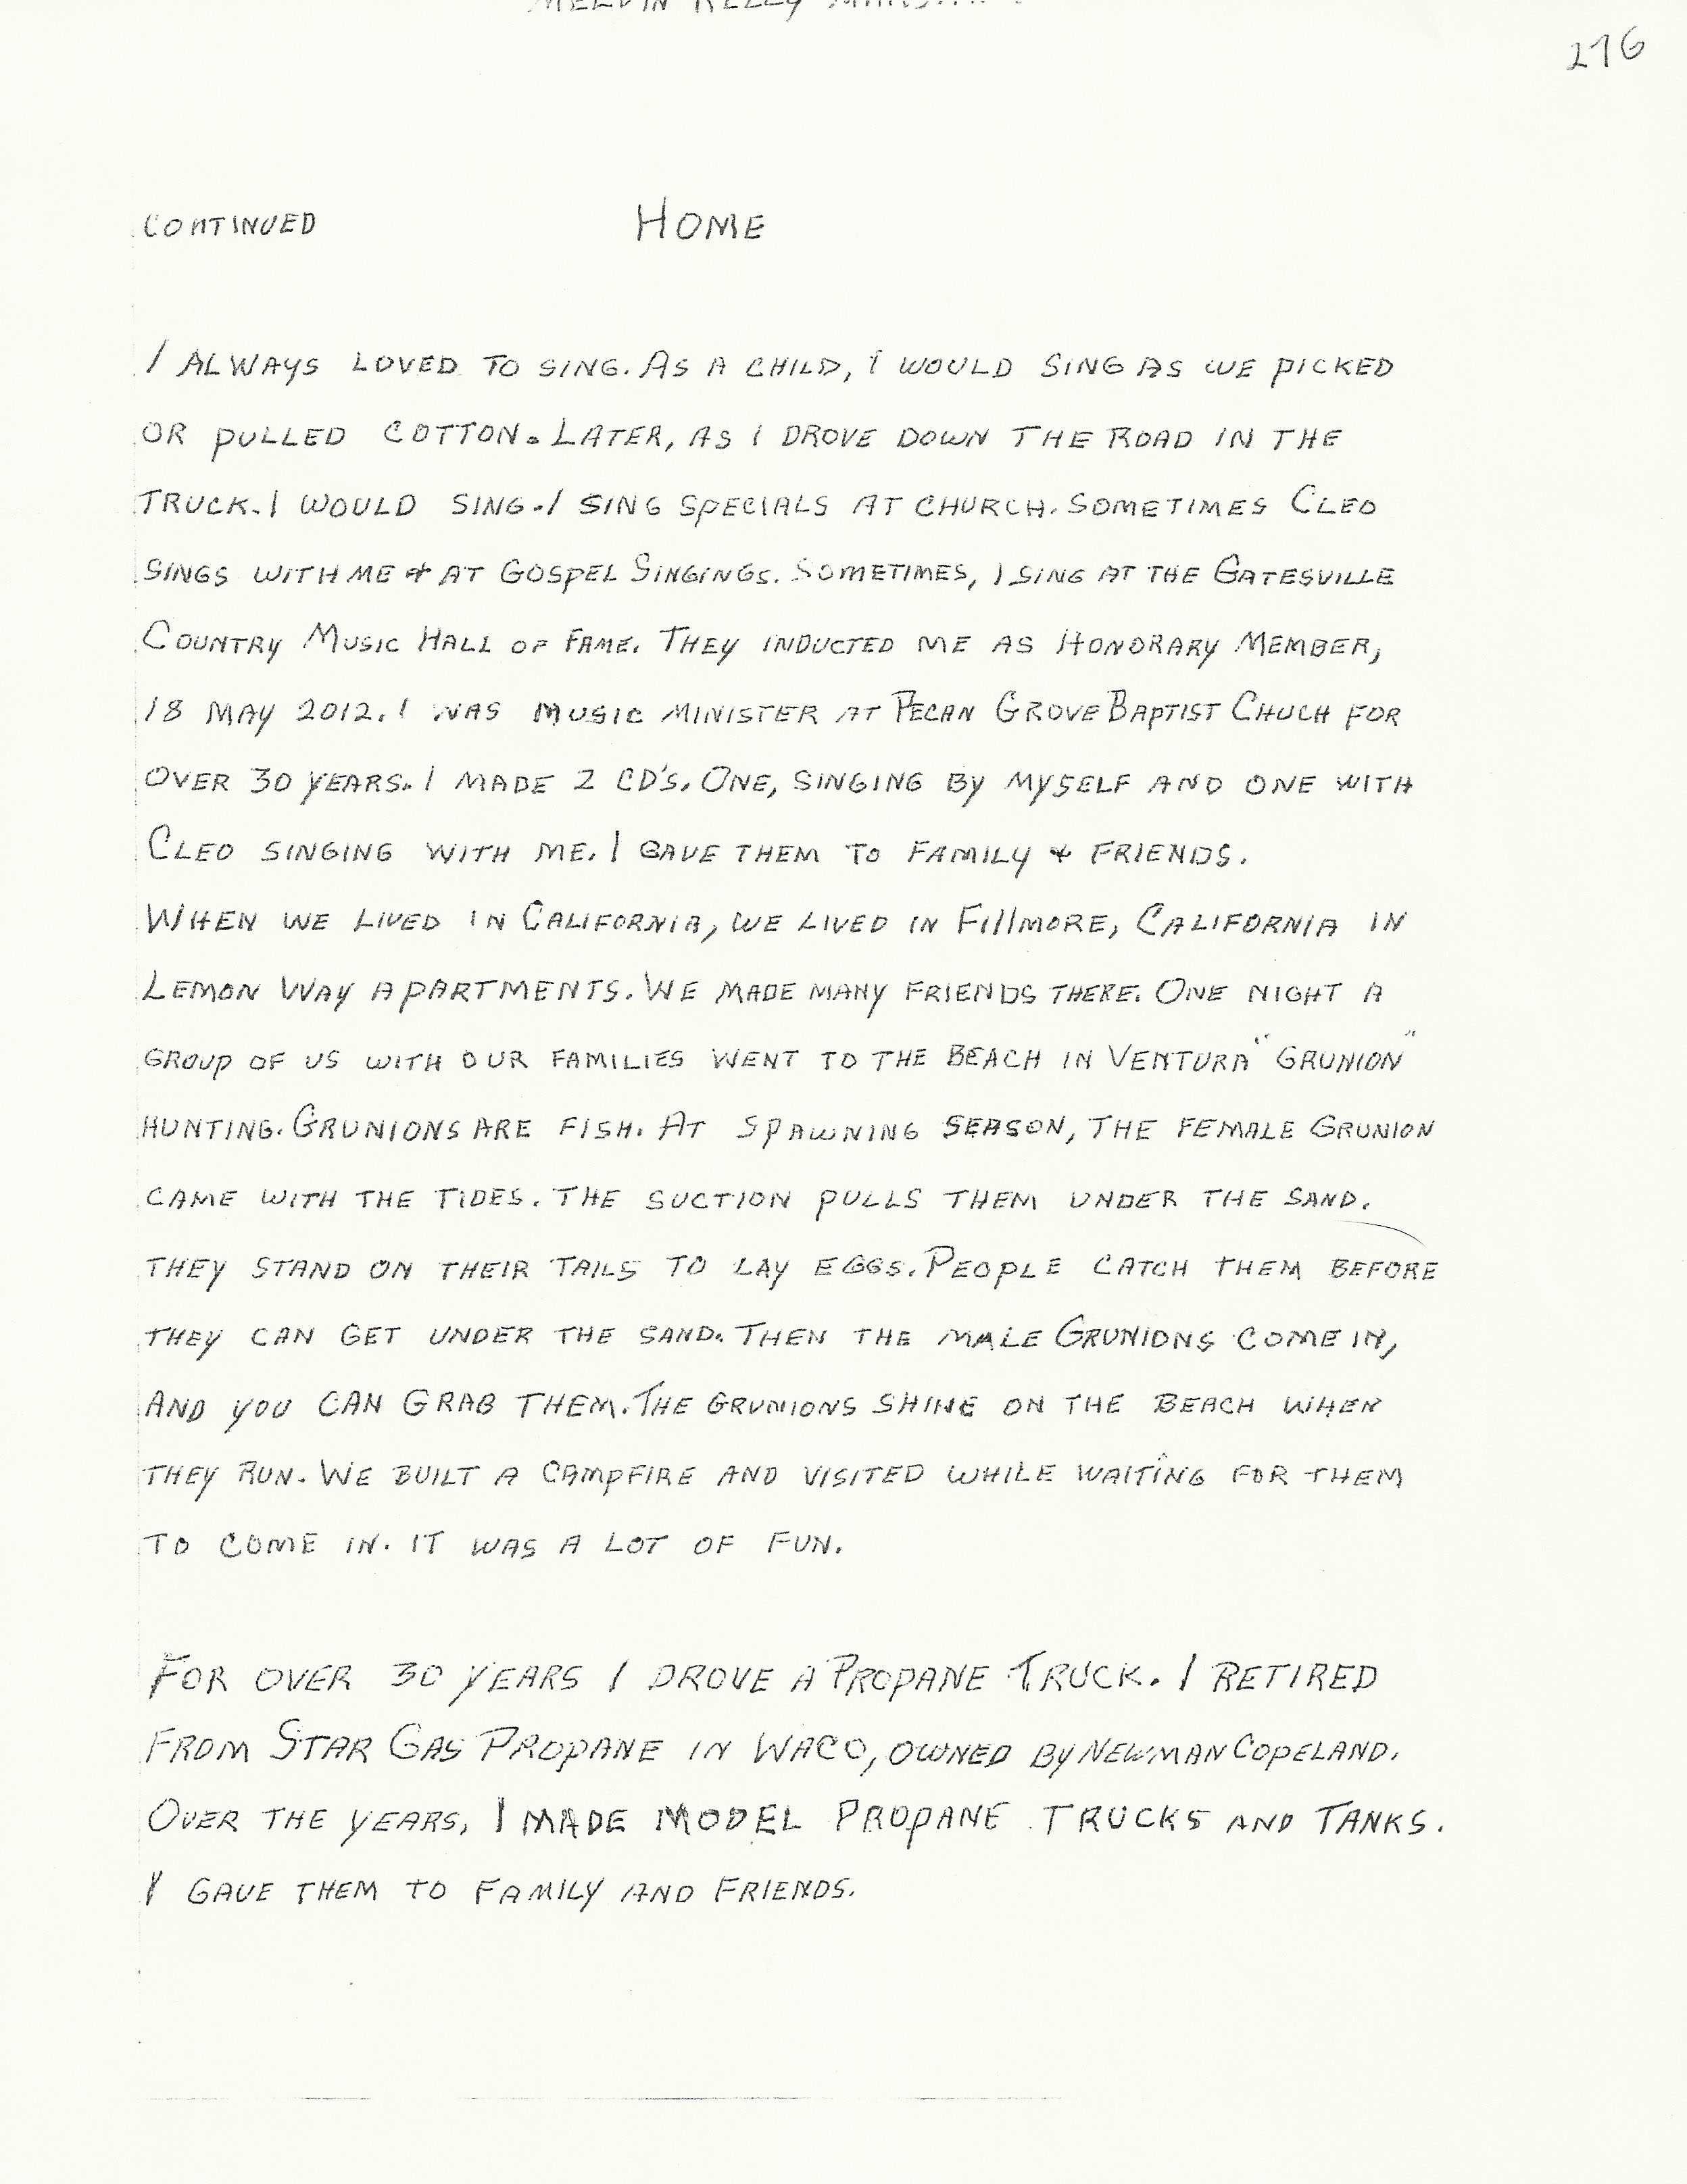 MELVIN KELLY
276
CONTINUED HOME
I ALWAYS LOVED TO SING. AS A CHILD, I WOULD SING AS WE PICKED
OR PULLED COTTON. LATER, AS I DROVE DOWN THE ROAD IN THE
TRUCK. I WOULD SING. I SING SPECIALS AT CHURCH. SOMETIMES CLEO
SINGS WITH ME & AT GOSPEL SINGINGS. SOMETIMES, I SING AT THE GATESVILLE
COUNTRY MUSIC HALL OF FAME. THEY INDUCTED ME AS HONORARY MEMBER,
18 MAY 2012. I WAS MUSIC MINISTER AT PECAN GROVE BAPTIST CHUCH FOR
OVER 30 YEARS. I MADE 2 CD'S. ONE, SINGING BY MYSELF AND ONE WITH
CLEO SINGING WITH ME. I GAVE THEM TO FAMILY & FRIENDS.
WHEN WE LIVED IN CALIFORNIA, WE LIVED IN FILLMORE, CALIFORNIA IN
LEMON WAY APARTMENTS. WE MADE MANY FRIENDS THERE. ONE NIGHT A
GROUP OF US WITH OUR FAMILIES WENT TO THE BEACH IN VENTURA "GRUNION"
HUNTING. GRUNIONS ARE FISH. AT SPAWNING SEASON, THE FEMALE GRUNION
CAME WITH THE TIDES. THE SUCTION PULLS THEM UNDER THE SAND.
THEY STAND ON THEIR TAILS TO LAY EGGS. PEOPLE CATCH THEM BEFORE
THEY CAN GET UNDER THE SAND. THEN THE MALE GRUNIONS COME IN,
AND YOU CAN GRAB THEM. THE GRUNIONS SHINE ON THE BEACH WHEN
THEY RUN. WE BUILT A CAMPFIRE AND VISITED WHILE WAITING FOR THEM
TO COME IN. IT WAS A LOT OF FUN.
FOR OVER 30 YEARS I DROVE A PROPANE TRUCK. I RETIRED
FROM STAR GAS PROPANE IN WACO, OWNED BY NEWMAN COPELAND.
OVER THE YEARS, I MADE MODEL PROPANE TRUCKS AND TANKS.
I GAVE THEM TO FAMILY AND FRIENDS.